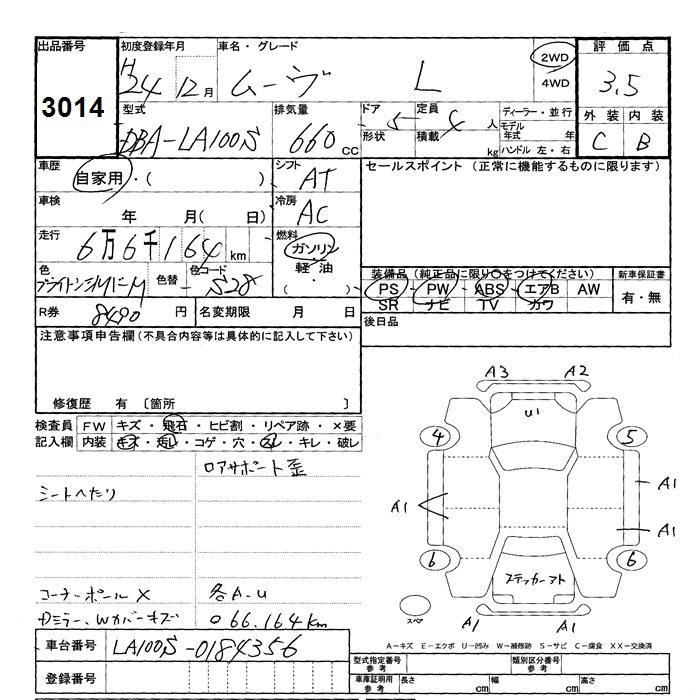 出品番号
3014
初度登録年月
H
24 12月
車名・グレード
ムーヴ L
2WD
4WD
評価点
3.5
外装 内装
C B
型式
DBA-LA100S
排気量
660 cc
ドア 5
形状
定員 4 人
積載 kg
ディーラー・並行
モデル
年式 年
ハンドル 左・右
車歴
自家用・( )
シフト
AT
セールスポイント (正常に機能するものに限ります)
車検
年 月( 日)
冷房
AC
走行
6万6千164 km
燃料
ガソリン
軽油
( ・ )
色
色替 -
色コード
S28
装備品 (純正品に限り○をつけてください)
PS - PW - ABS - エアB AW
SR ナビ TV カワ
新車保証書
有・無
R券 8490 円
名変期限 月 日
後日品
注意事項申告欄(不具合内容等は具体的に記入して下さい)
修復歴 有 〔箇所 〕
検査員
記入欄
FW キズ・飛石・ヒビ割・リペア跡・×要
内装 キズ・汚レ・コゲ・穴・スレ・キレ・破レ
ロアサポート歪
シートへたり
コーナーポール X 各A-U
Dミラー、Wカバーキズ
○66,164km
A3 A2
U1
4 5
A1
A1
A1
6 6
ステッカーアト
スペア
A1 A1
A-キズ E-エクボ U-凹み W-補修跡 S-サビ C-腐食 XX-交換済
車台番号 LA100S-0184356
登録番号
型式指定番号
参考
類別区分番号
参考
車庫証明用
参考
長さ cm 幅 cm 高さ cm